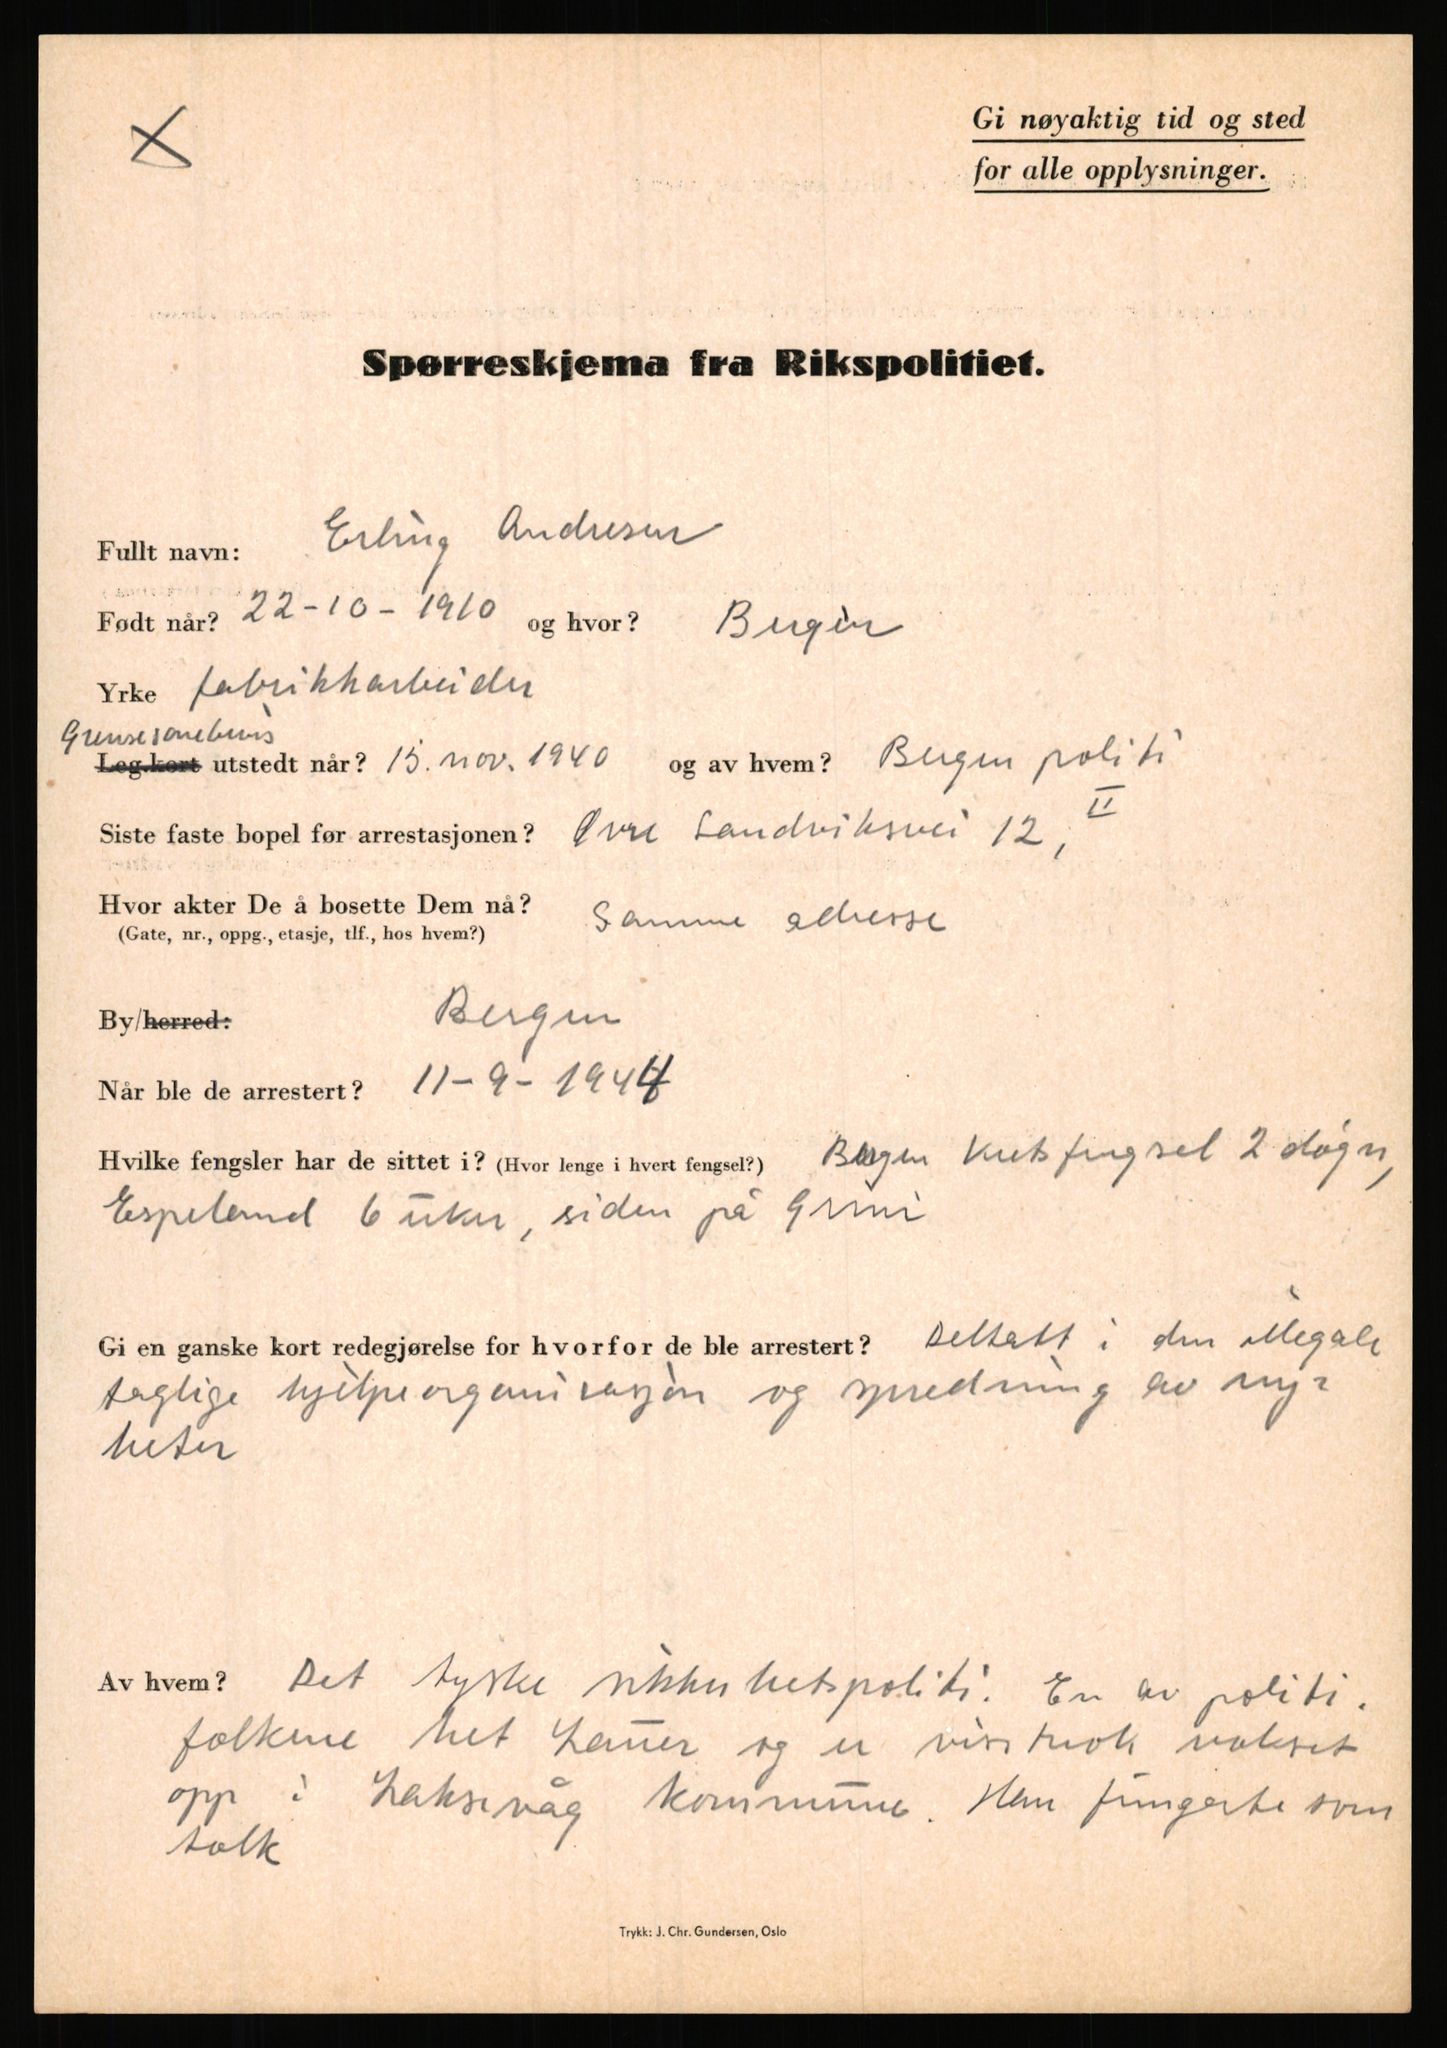 Gi nøyaktig tid og sted
for alle opplysninger.
Spørreskjema fra Rikspolitiet.
Fullt navn: Erling Andresen
Født når? 22-10-1910 og hvor? Bergen
Yrke fabrikkarbeider
Grensesonebevis
Leg.kort utstedt når? 15. nov. 1940 og av hvem? Bergen politi
Siste faste bopel før arrestasjonen? Øvre Sandviksvei 12, II
Hvor akter De å bosette Dem nå? Samme adresse
(Gate, nr., oppg., etasje, tlf., hos hvem?)
By/herred: Bergen
Når ble de arrestert? 11-9-1944
Hvilke fengsler har de sittet i? (Hvor lenge i hvert fengsel?) Bergen Kretsfengsel 2 døgn,
Espeland 6 uker, siden på Grini
Gi en ganske kort redegjørelse for hvorfor de ble arrestert? Deltatt i den illegale
faglige hjelpeorganisasjon og spredning av ny-
heter
Av hvem? Det tyske sikkerhetspoliti. En av politi-
folkene het Lauer og er visstnok vokset
opp i Laksevåg kommune. Han fungerte som
tolk
Trykk: J. Chr. Gundersen, Oslo